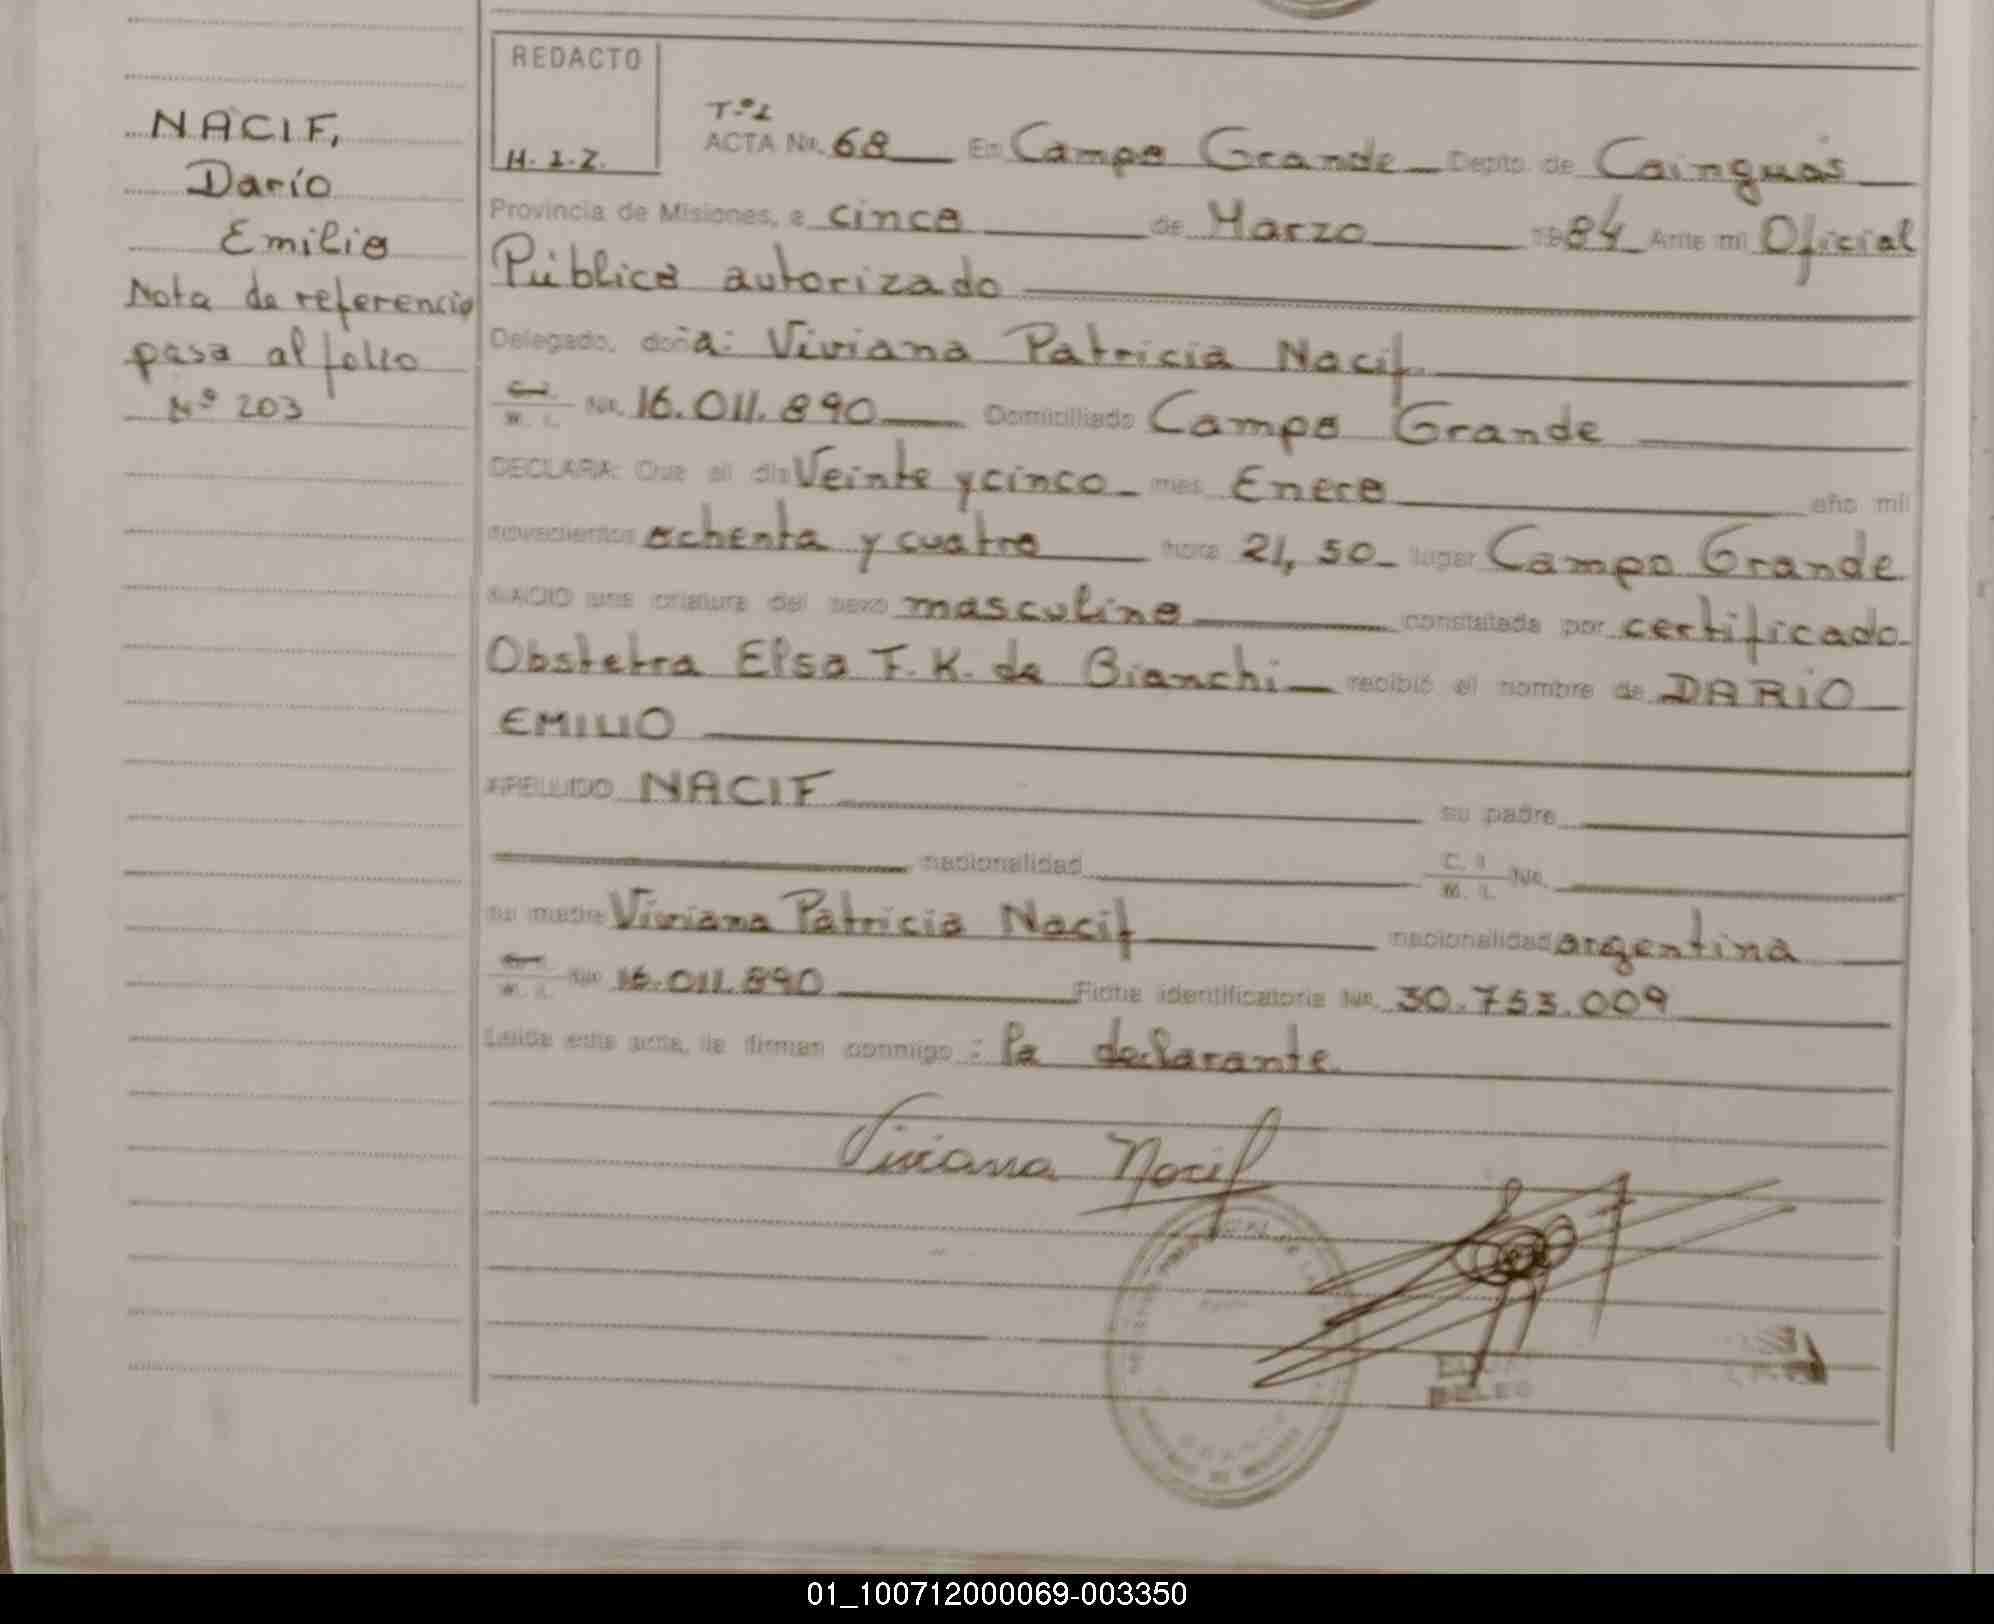 NACIF,
Darío
Emilio
Nota de referencia
pasa al folio
Nº 203
REDACTO
H. I. Z.
Tº 1
ACTA Nº. 68 En Campo Grande Depto. de Cainguás
Provincia de Misiones, a cinco de Marzo 1984 Ante mi Oficial
Público autorizado
Delegado, doña: Viviana Patricia Nacif
M. I. Nº. 16.011.890 Domiciliado Campo Grande
DECLARA: Que el día Veinte y cinco mes Enero año mil
novecientos ochenta y cuatro hora 21,50 lugar Campo Grande
NACIO una criatura del sexo masculino constatada por certificado
Obstetra Elsa F. K. de Bianchi recibió el nombre de DARÍO
EMILIO
APELLIDO NACIF su padre
nacionalidad C. I. M. I. Nº.
su madre Viviana Patricia Nacif nacionalidad argentina
M. I. Nº 16.011.890 Ficha identificatoria Nº. 30.753.009
Leída esta acta, la firman conmigo: la declarante
Viviana Nacif
01_100712000069-003350